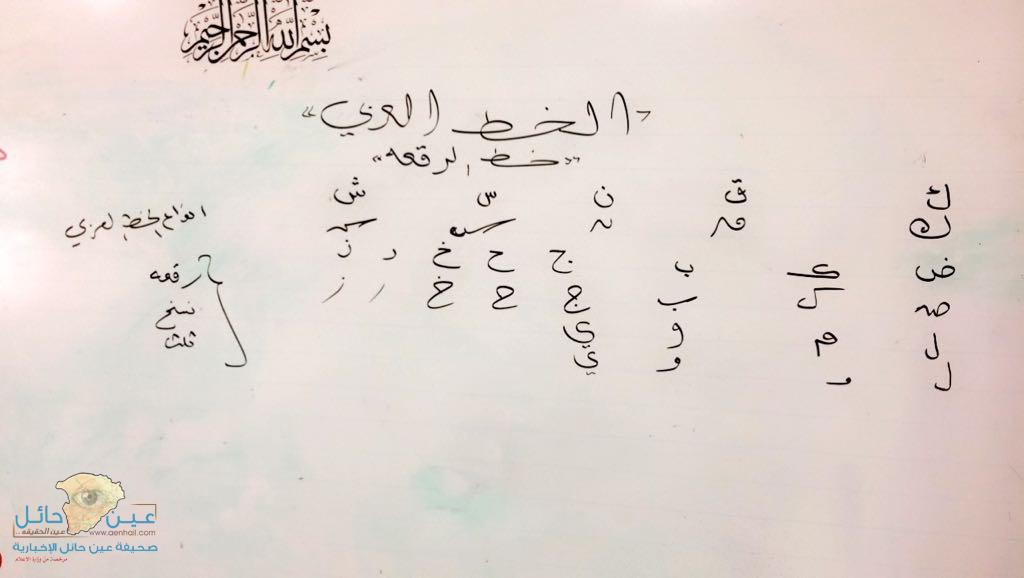 بسم الله الرحمن الرحيم
"الخط العربي"
"خط الرقعه"
ك ق ن س ش
ك ق ن س ش
ض ك ب ج ح خ د ز
ص ك ب ج ح خ ر ز
ل م و ي
ل و و ي
انواع الخط العربي
رقعه
نسخ
ثلث
عين حائل
عين الحقيقه ..
www.aenhail.com
صحيفة عين حائل الإخبارية
مرخصة من وزارة الاعلام